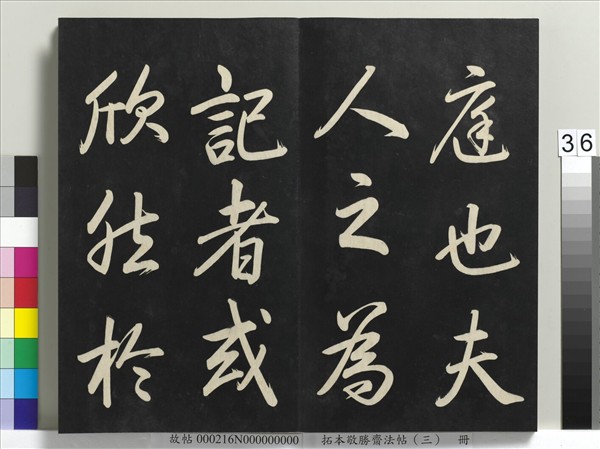 庭也夫
人之為
記者或
欣然於
36
故帖 000216N000000000 拓本敬勝齋法帖（三） 冊